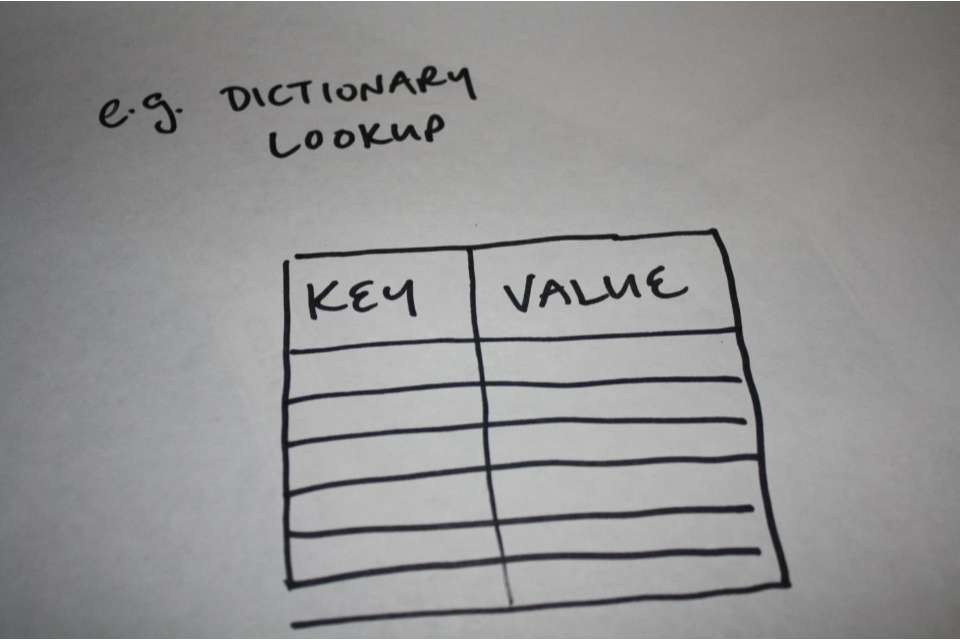 e.g. DICTIONARY
LOOKUP
KEY VALUE